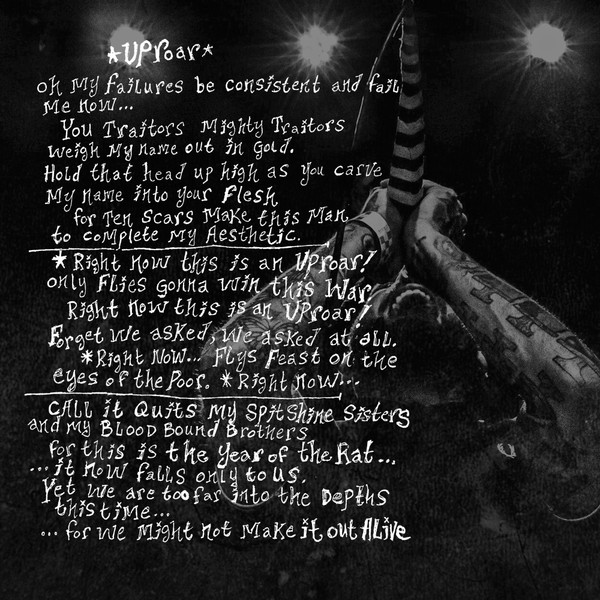 *UPRoar*
oh My failures be consistent and fail
Me now...
You Traitors Mighty Traitors
weigh My name out in Gold.
Hold that head up high as you carve
My name into your Flesh
for Ten Scars Make this Man
to complete My Aesthetic.
*Right now this is an UPRoar!
only Flies gonna win this War.
Right now this is an UPRoar!
Forget we asked, we asked at all.
*Right Now... Flys Feast on the
eyes of the Poor. *Right now...
CALL it Quits My Spitshine Sisters
and my BLOOD BOUND Brothers
for this is the Year of the Rat...
...it now falls only to us.
Yet we are too far into the Depths
this time...
...for we Might not Make it out ALive